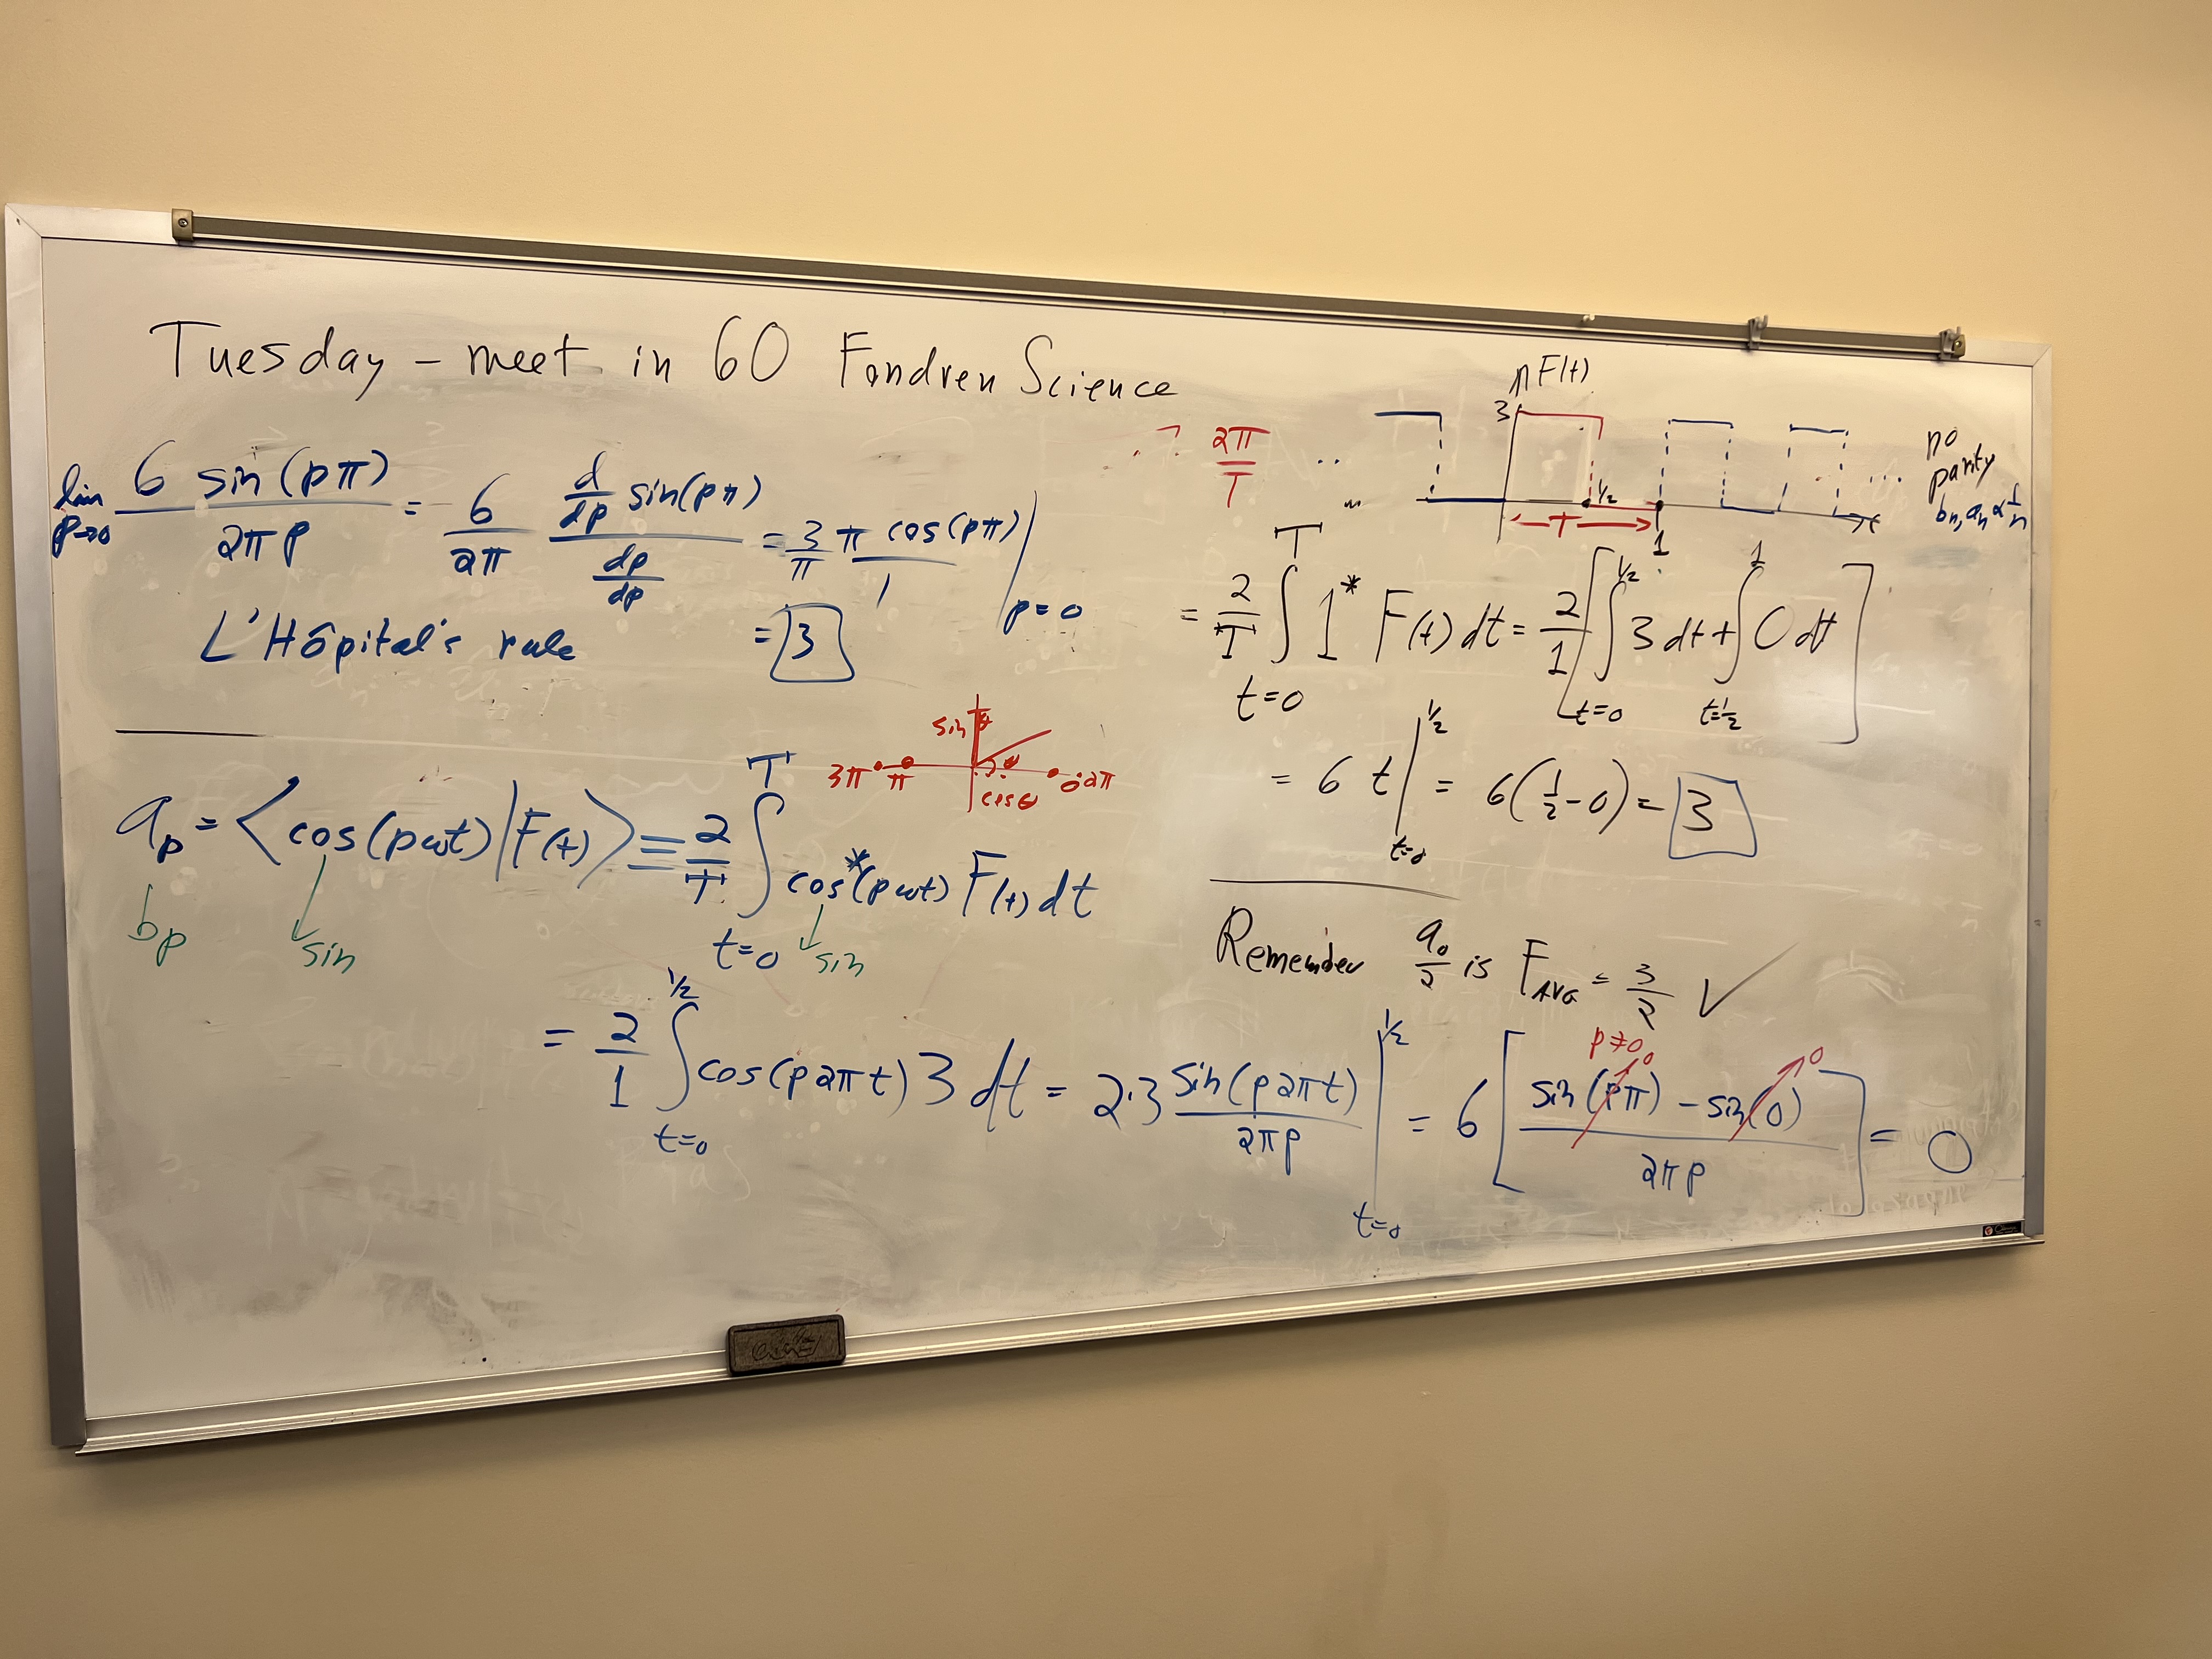 Tuesday – meet in 60 Fondren Science
lim p→0 6 sin(pπ) / 2πp = 6/2π d/dp sin(pπ) / dp/dp = 3/π π cos(pπ) / 1 | p=0
L'Hôpital's rule = 3
2π/T
F(t)
3
1/2
T
1
t
no
parity
bn, an ∝ 1/n
= 2/T ∫ t=0 T 1* F(t) dt = 2/1 [ ∫ t=0 1/2 3 dt + ∫ t=1/2 1 0 dt ]
= 6 t | t=0 1/2 = 6(1/2 - 0) = 3
sin θ
3π π θ 0 2π
cos θ
ap = ⟨cos(pωt)|F(t)⟩ ≡ 2/T ∫ t=0 T cos*(pωt) F(t) dt
bp sin sin
Remember a0/2 is FAVG = 3/2 ✓
= 2/1 ∫ t=0 1/2 cos(p2πt) 3 dt = 2·3 sin(p2πt) / 2πp | t=0 1/2 = 6 [ sin(pπ) - sin(0) / 2πp ] = 0
p≠0 0 0